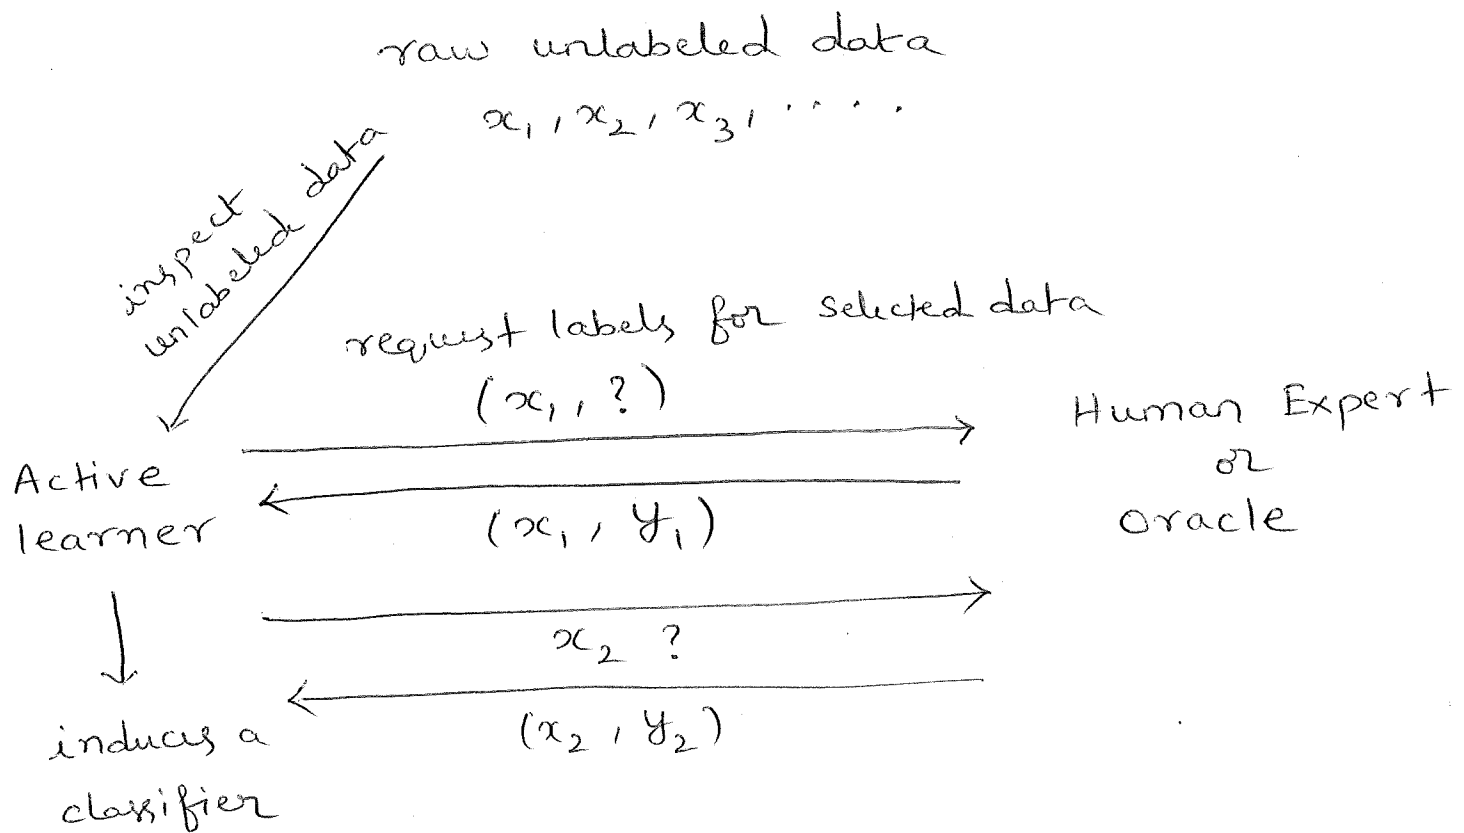 raw unlabeled data
x₁, x₂, x₃, .....
inspect
unlabeled data
request labels for selected data
(x₁, ?)
Human Expert
or
Oracle
Active
learner
(x₁, y₁)
x₂ ?
(x₂, y₂)
induces a
classifier